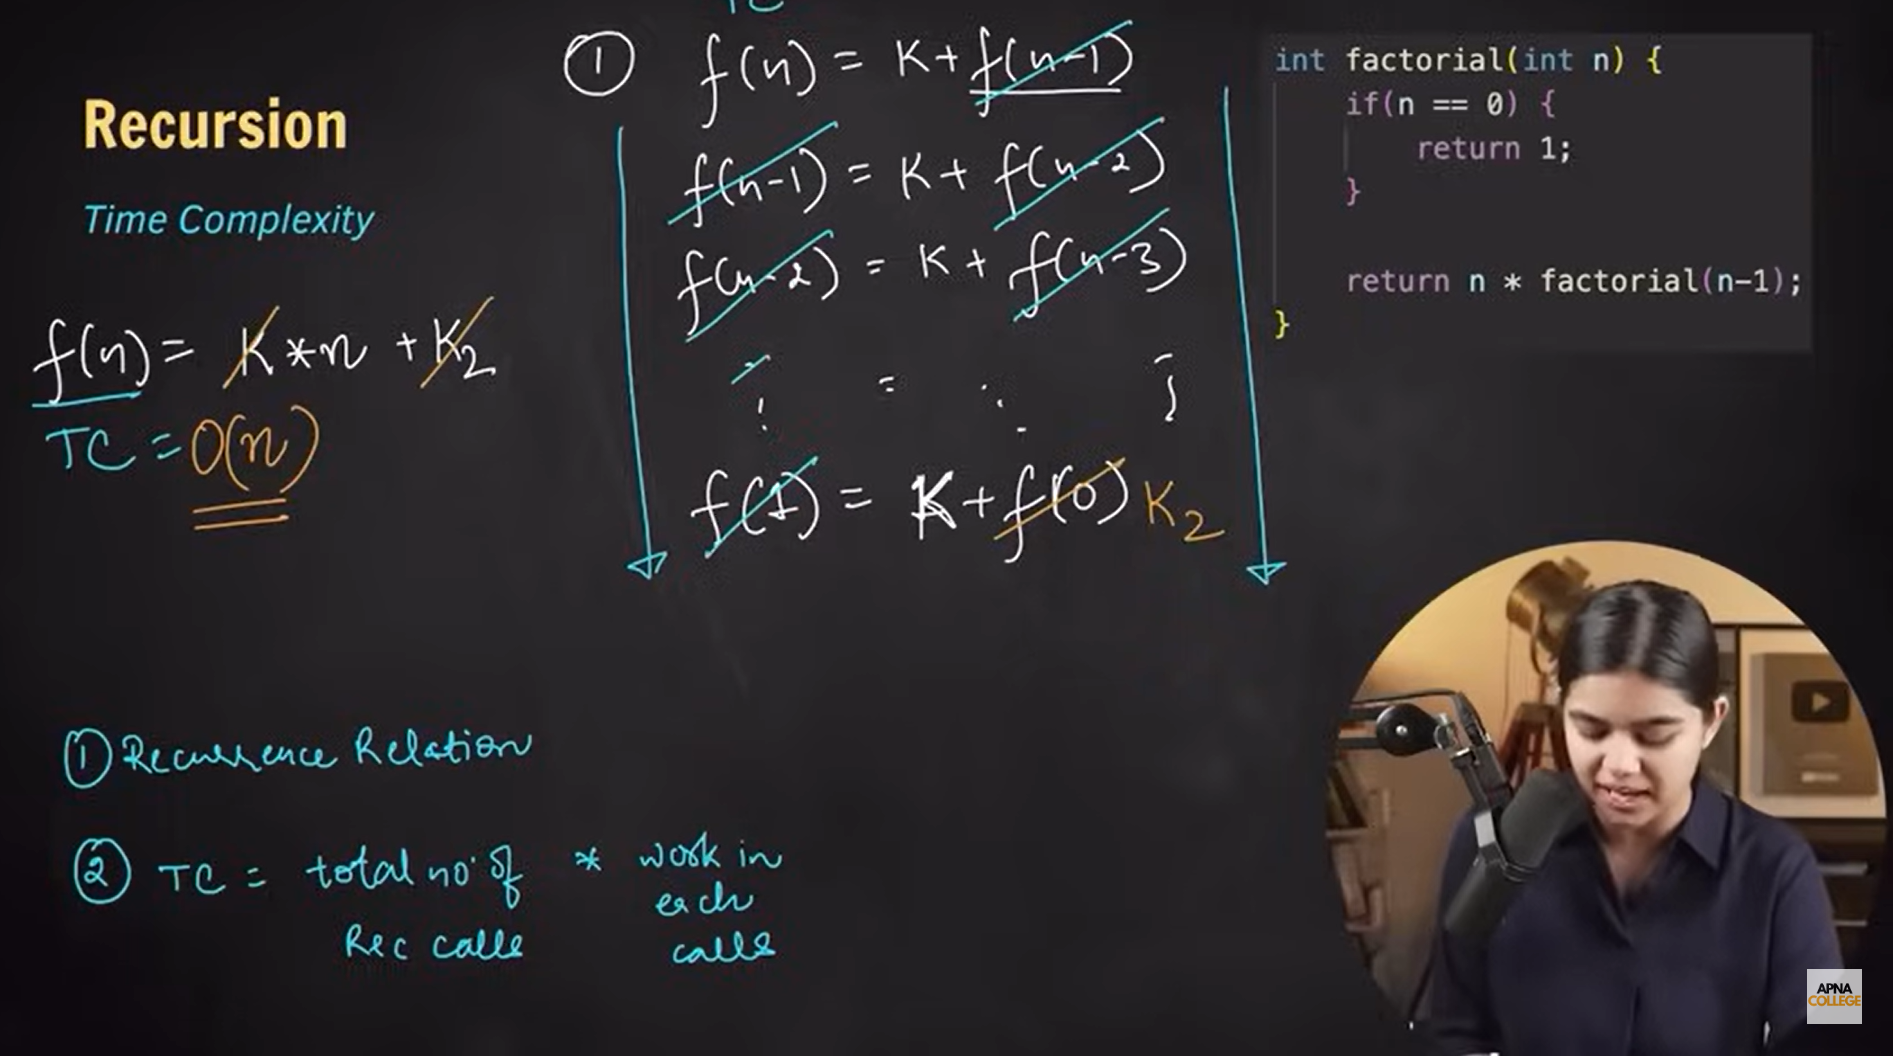 TC
Recursion
Time Complexity
f(n) = K * n + K2
TC = O(n)
① f(n) = K + f(n-1)
f(n-1) = K + f(n-2)
f(n-2) = K + f(n-3)
⋮ = ⋮ ⋮
f(1) = K + f(0) K2
int factorial(int n) {
if(n == 0) {
return 1;
}
return n * factorial(n-1);
}
① Recurrence Relation
② TC = total no. of * work in
each
Rec calls calls
APNA
COLLEGE